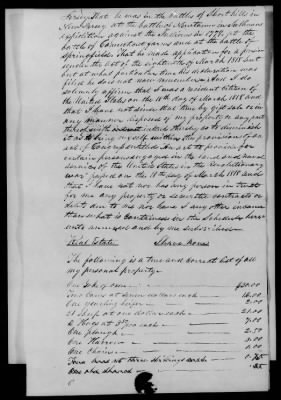 that he was in the battles of Short hills in
New Jersey at the battle of Newtown in Sullivans
Expedition against the Indians in 1779, at the
battle of Connecticut farms and at the battle of
Springfield that he made application for a pension
under the act of the eighteenth of March 1818 but
but at what particular time his declaration was
filed he does not now remember. And I do
solemnly affirm that I was a resident citizen of
the United States on the 18th day of March 1818 and
that I have not since that time by gift sale or in
any manner disposed of my property or any part
thereof with intent thereby so to diminish
it as to bring myself within the provisions of an
act of Congress entitled An act to provide for
certain persons engaged in the land and naval
service of the United States in the Revolutionary
war passed on the 18th day of March 1818 and
that I have not nor has any person in trust
for me any property or securities contracts or
debts due to me nor have I any other income
than what is contained in the Schedule here
unto annexed and by me subscribed
Real Estate I have none
The following is a true and correct list of all
my personal property
One Yoke of oxen $50.00
Four Cows at each 16.00
One yearling heifer 2.00
21 Sheep at one dollar each 21.00
One plough 2.50
One Harrow
One chain